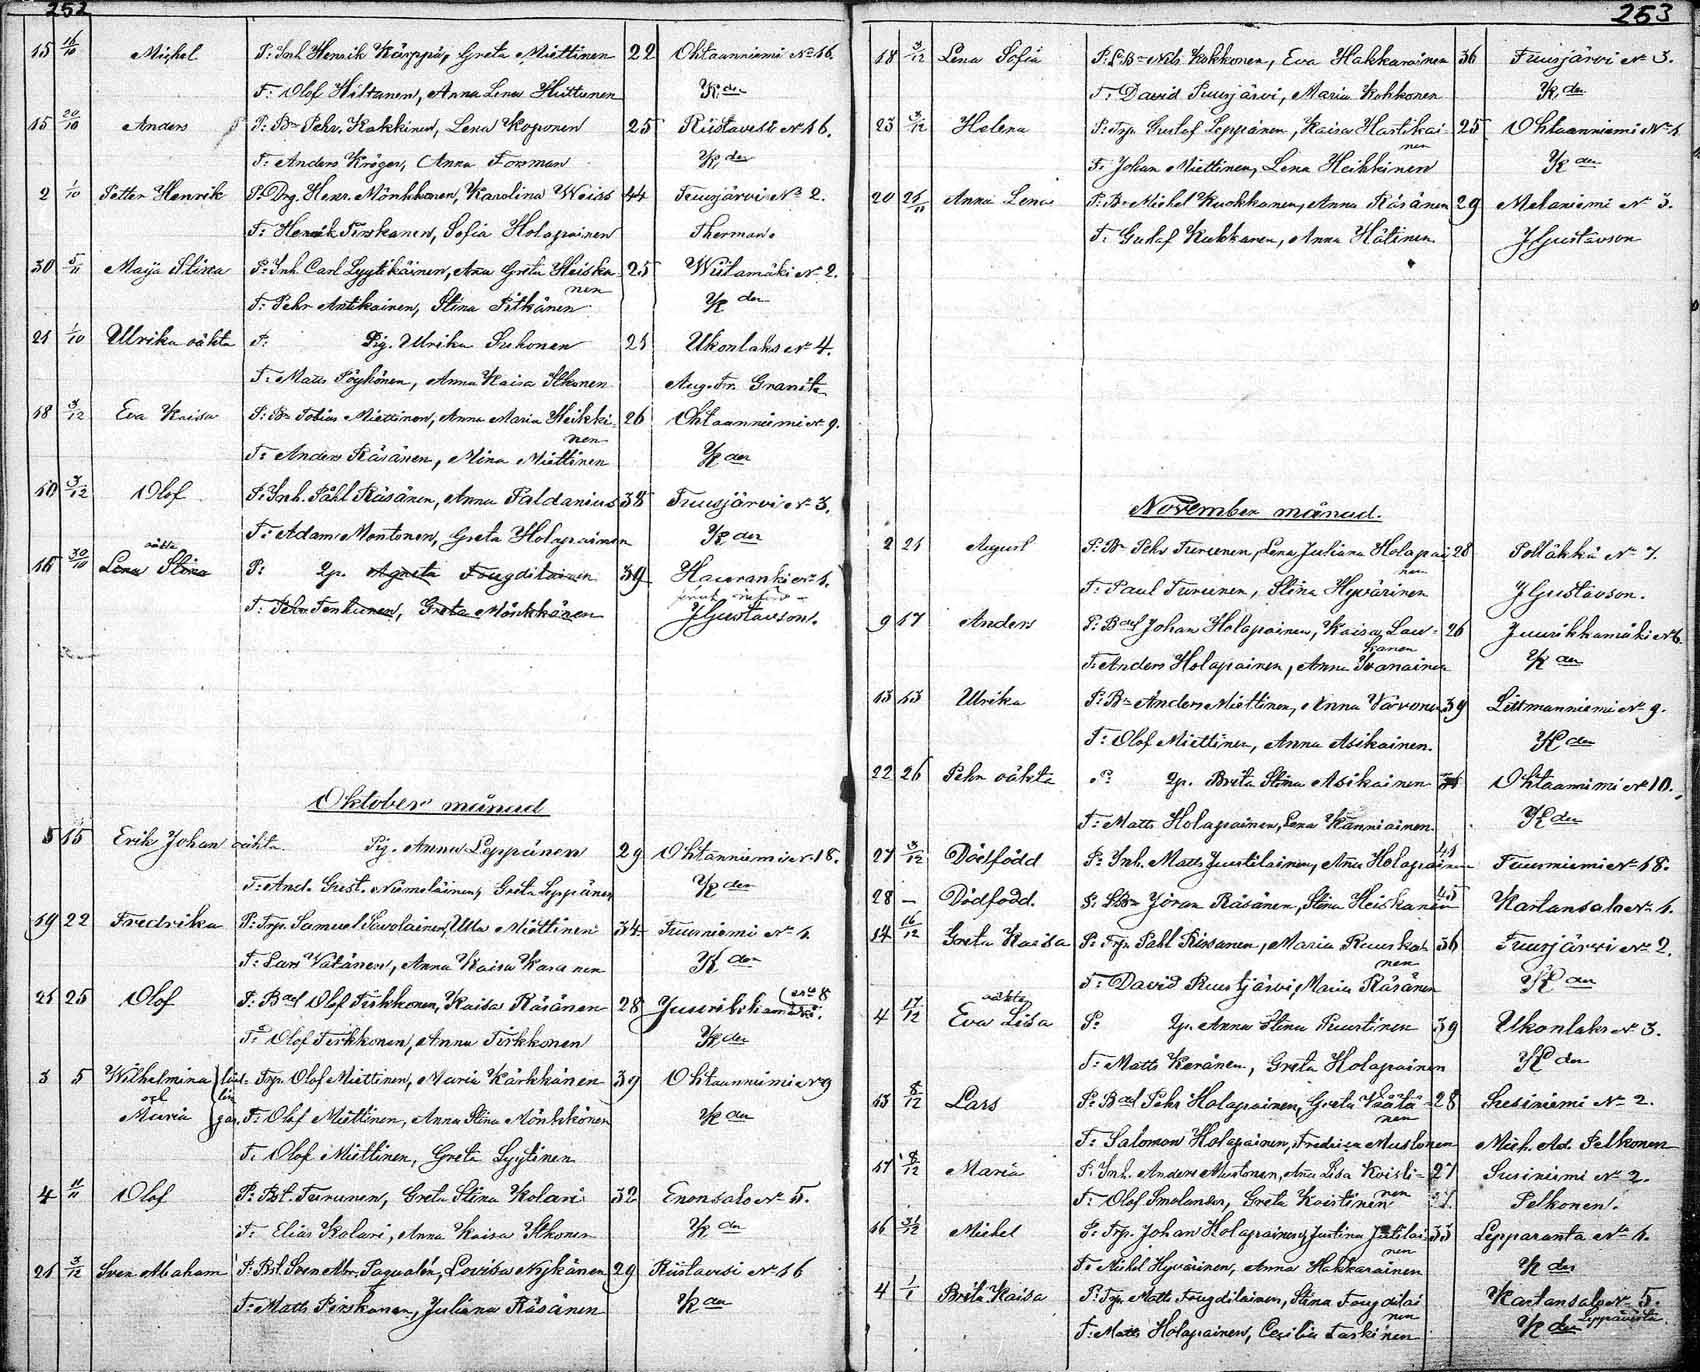 252
15 16/10 Michel P: Inh Henrik Kärppä, Greta Miettinen 22 Ohtaanniemi No 16.
F: Olof Hiltunen, Anna Lena Huttunen K der
15 20/10 Anders P: Bn Pehr Kakkinen, Lena Koponen 25 Riistavesi No 16.
F: Anders Kröger, Anna Forsman K der
2 1/10 Petter Henrik P: Drg Henr. Mönkkönen, Karolina Weiss 44 Tuusjärvi No 2.
F: Henrik Pirskanen, Sofia Holopainen Therman.
30 5/11 Maija Stina P: Inh. Carl Lyytikäinen, Ana Greta Heiska- 25 Wiitamäki No 2.
nen
F: Pehr Antikainen, Stina Pitkänen K der
21 1/10 Ulrika oäkta P: Pig. Ulrika Suhonen 21 Ukonlaks No 4.
F: Matts Pöykönen, Anna Kaisa Itkonen Aug. Fr. Granit
18 3/12 Eva Kaisa P: Bn Tobias Miettinen, Anna Maria Heikki- 26 Ohtaanniemi No 9.
nen
F: Anders Räsänen, Mina Miettinen K der
10 3/12 Olof P: Inh. Påhl Räsänen, Anna Paldanius 38 Tuusjärvi No 3.
F: Adam Montonen, Greta Holopainen K der
oäkta
16 30/10 Lena Stina P: Qp. Agneta Fougdilainen 39 Hauranki No 1.
F: Pehr Tenhunen, Greta Mönkkönen JGustavson.
Oktober månad
5 15 Erik Johan oäkta Pig. Anna Leppänen 29 Ohtaanniemi No 18.
F: And. Gust. Niemeläinen, Greta Leppänen K der
19 22 Fredrika P: Trp. Samuel Savolainen, Ulla Miettinen 34 Tuusniemi No 1.
F: Lars Vatanen, Anna Kaisa Kasanen K der
21 25 Olof P: Bad Olof Tirkkonen, Kaisa Räsänen 28 Juurikkamäki No 8
F: Olof Tirkkonen, Anna Tirkkonen K der
3 5 Wilhelmina Trp. Olof Miettinen, Maria Kärkkänen 39 Ohtaanniemi No 9
och
Maria F: Olof Miettinen, Anna Stina Mönkkönen K der
F: Olof Miettinen, Greta Lyytinen
4 11/11 Olof P: Bst. Turunen, Greta Stina Kolari 32 Enonsalo No 5.
F: Elias Kolari, Anna Kaisa Itkonen K der
21 3/12 Sven Abraham P: Bst. Sven Abr. Paqualén, Lovisa Nykänen 29 Riistavesi No 16
F: Matts Pirskanen, Juliana Räsänen K der
253
18 3/12 Lena Sofia P: L.Bn Nils Kokkonen, Eva Hakkarainen 36 Tuusjärvi No 3.
F: David Puusjärvi, Maria Kokkonen K der
23 3/12 Helena P: Trp. Gustaf Leppänen, Kaisa Hartikai- 25 Ohtaanniemi No 1.
nen
F: Johan Miettinen, Lena Heikkinen K der
20 25/11 Anna Lena P: Bn Michel Kuokkanen, Anna Räsänen 29 Melaniemi No 3.
F: Gustaf Kukkanen, Anna Hätinen JGustavson
November månad.
2 21 August P: Bn Pehr Turunen, Lena Juliana Holopai- 28 Pohlähki No 7.
nen
F: Paul Turunen, Stina Hyvärinen JGustavson.
9 17 Anders P: Bad Johan Holopainen, Kaisa Lau- 26 Juurikkamäki No 6.
kanen
F: Anders Holopainen, Anna K der
13 13 Ulrika P: Bn Anders Miettinen, Anna Varvonen 39 Litmanniemi No 9.
F: Olof Miettinen, Anna Asikainen. K der
22 26 Pehr oäkta P: Qp. Brita Stina Asikainen Ohtaanniemi No 10.
F: Matts Holopainen, Lena Känniainen. K der
27 3/12 Dödfödd P: Inh. Matts Juutilainen, Ana Holopainen 41 Tuusniemi No 18.
28 — Dödfödd. P: LBn Jöran Räsänen, Stina Heiskanen 45 Kartansalo No 1.
14 16/12 Greta Kaisa P: Trp. Pahl Rissanen, Maria Ruuska- 36 Tuusjärvi No 2.
nen
F: David Ruusjärvi, Maria Räsänen K der
oäkta
4 17/12 Eva Lisa P: Qp. Anna Stina Puustinen 39 Ukonlaks No 3.
F: Matts Keränen, Greta Holopainen K der
13 8/12 Lars P: Bad Pehr Holopainen, Greta Väätä- 28 Susiniemi No 2.
nen
F: Salomon Holopainen, Fredrica Mustonen Mich. Ad. Pelkonen
17 8/12 Maria P: Inh. Anders Mustonen, Ana Lisa Koisti- 27 Susiniemi No 2.
nen
F: Olof Smolander, Greta Koistinen Pelkonen.
16 31/12 Michel P: Trp. Johan Holopainen, Justina Jutilai- 33 Lepparanta No 1.
nen
F: Michel Hyvärinen, Anna Hakkarainen K der
4 1/1 Brita Kaisa P: Trp. Matts Fougdilainen, Stina Fougdilai- Kartansalo No 5.
nen
F: Matts Holopainen, Cecilia Taskinen K der Leppävirta